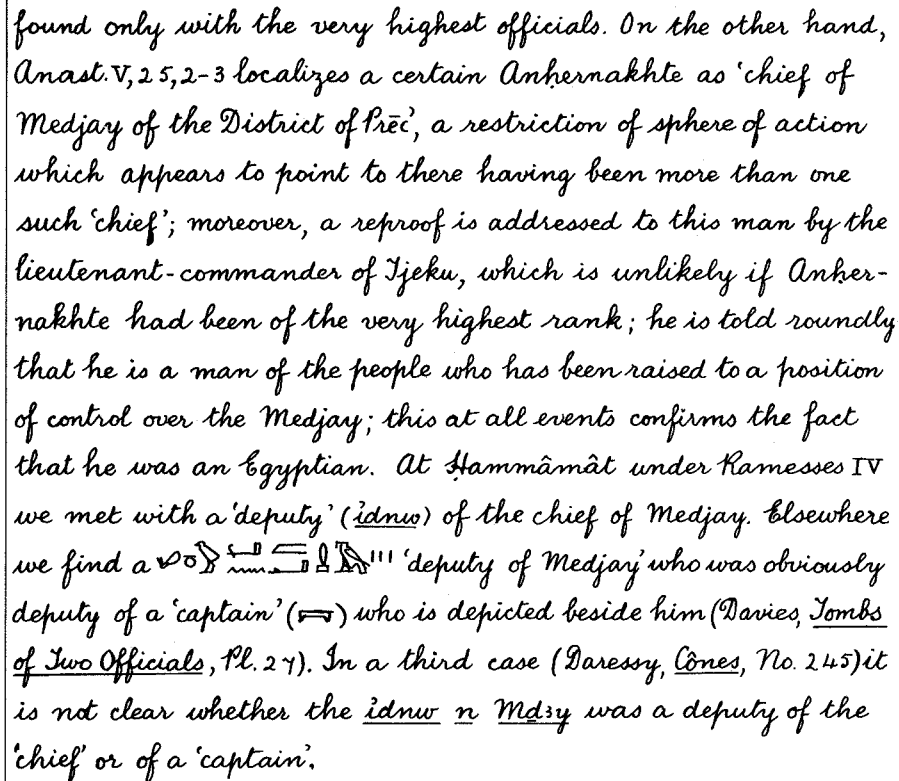 found only with the very highest officials. On the other hand,
Anast. V, 25, 2-3 localizes a certain Anḥernakhte as ‘chief of
Medjay of the District of Prēc’, a restriction of sphere of action
which appears to point to there having been more than one
such ‘chief’; moreover, a reproof is addressed to this man by the
lieutenant-commander of Tjeku, which is unlikely if Anḥer-
nakhte had been of the very highest rank; he is told roundly
that he is a man of the people who has been raised to a position
of control over the Medjay; this at all events confirms the fact
that he was an Egyptian. At Ḥammâmât under Ramesses IV
we met with a ‘deputy’ (idnw) of the chief of Medjay. Elsewhere
we find a ‘deputy of Medjay’ who was obviously
deputy of a ‘captain’ () who is depicted beside him (Davies, Tombs
of Two Officials, Pl. 27). In a third case (Daressy, Cônes, No. 245) it
is not clear whether the idnw n Mḏꜣy was a deputy of the
‘chief’ or of a ‘captain’.